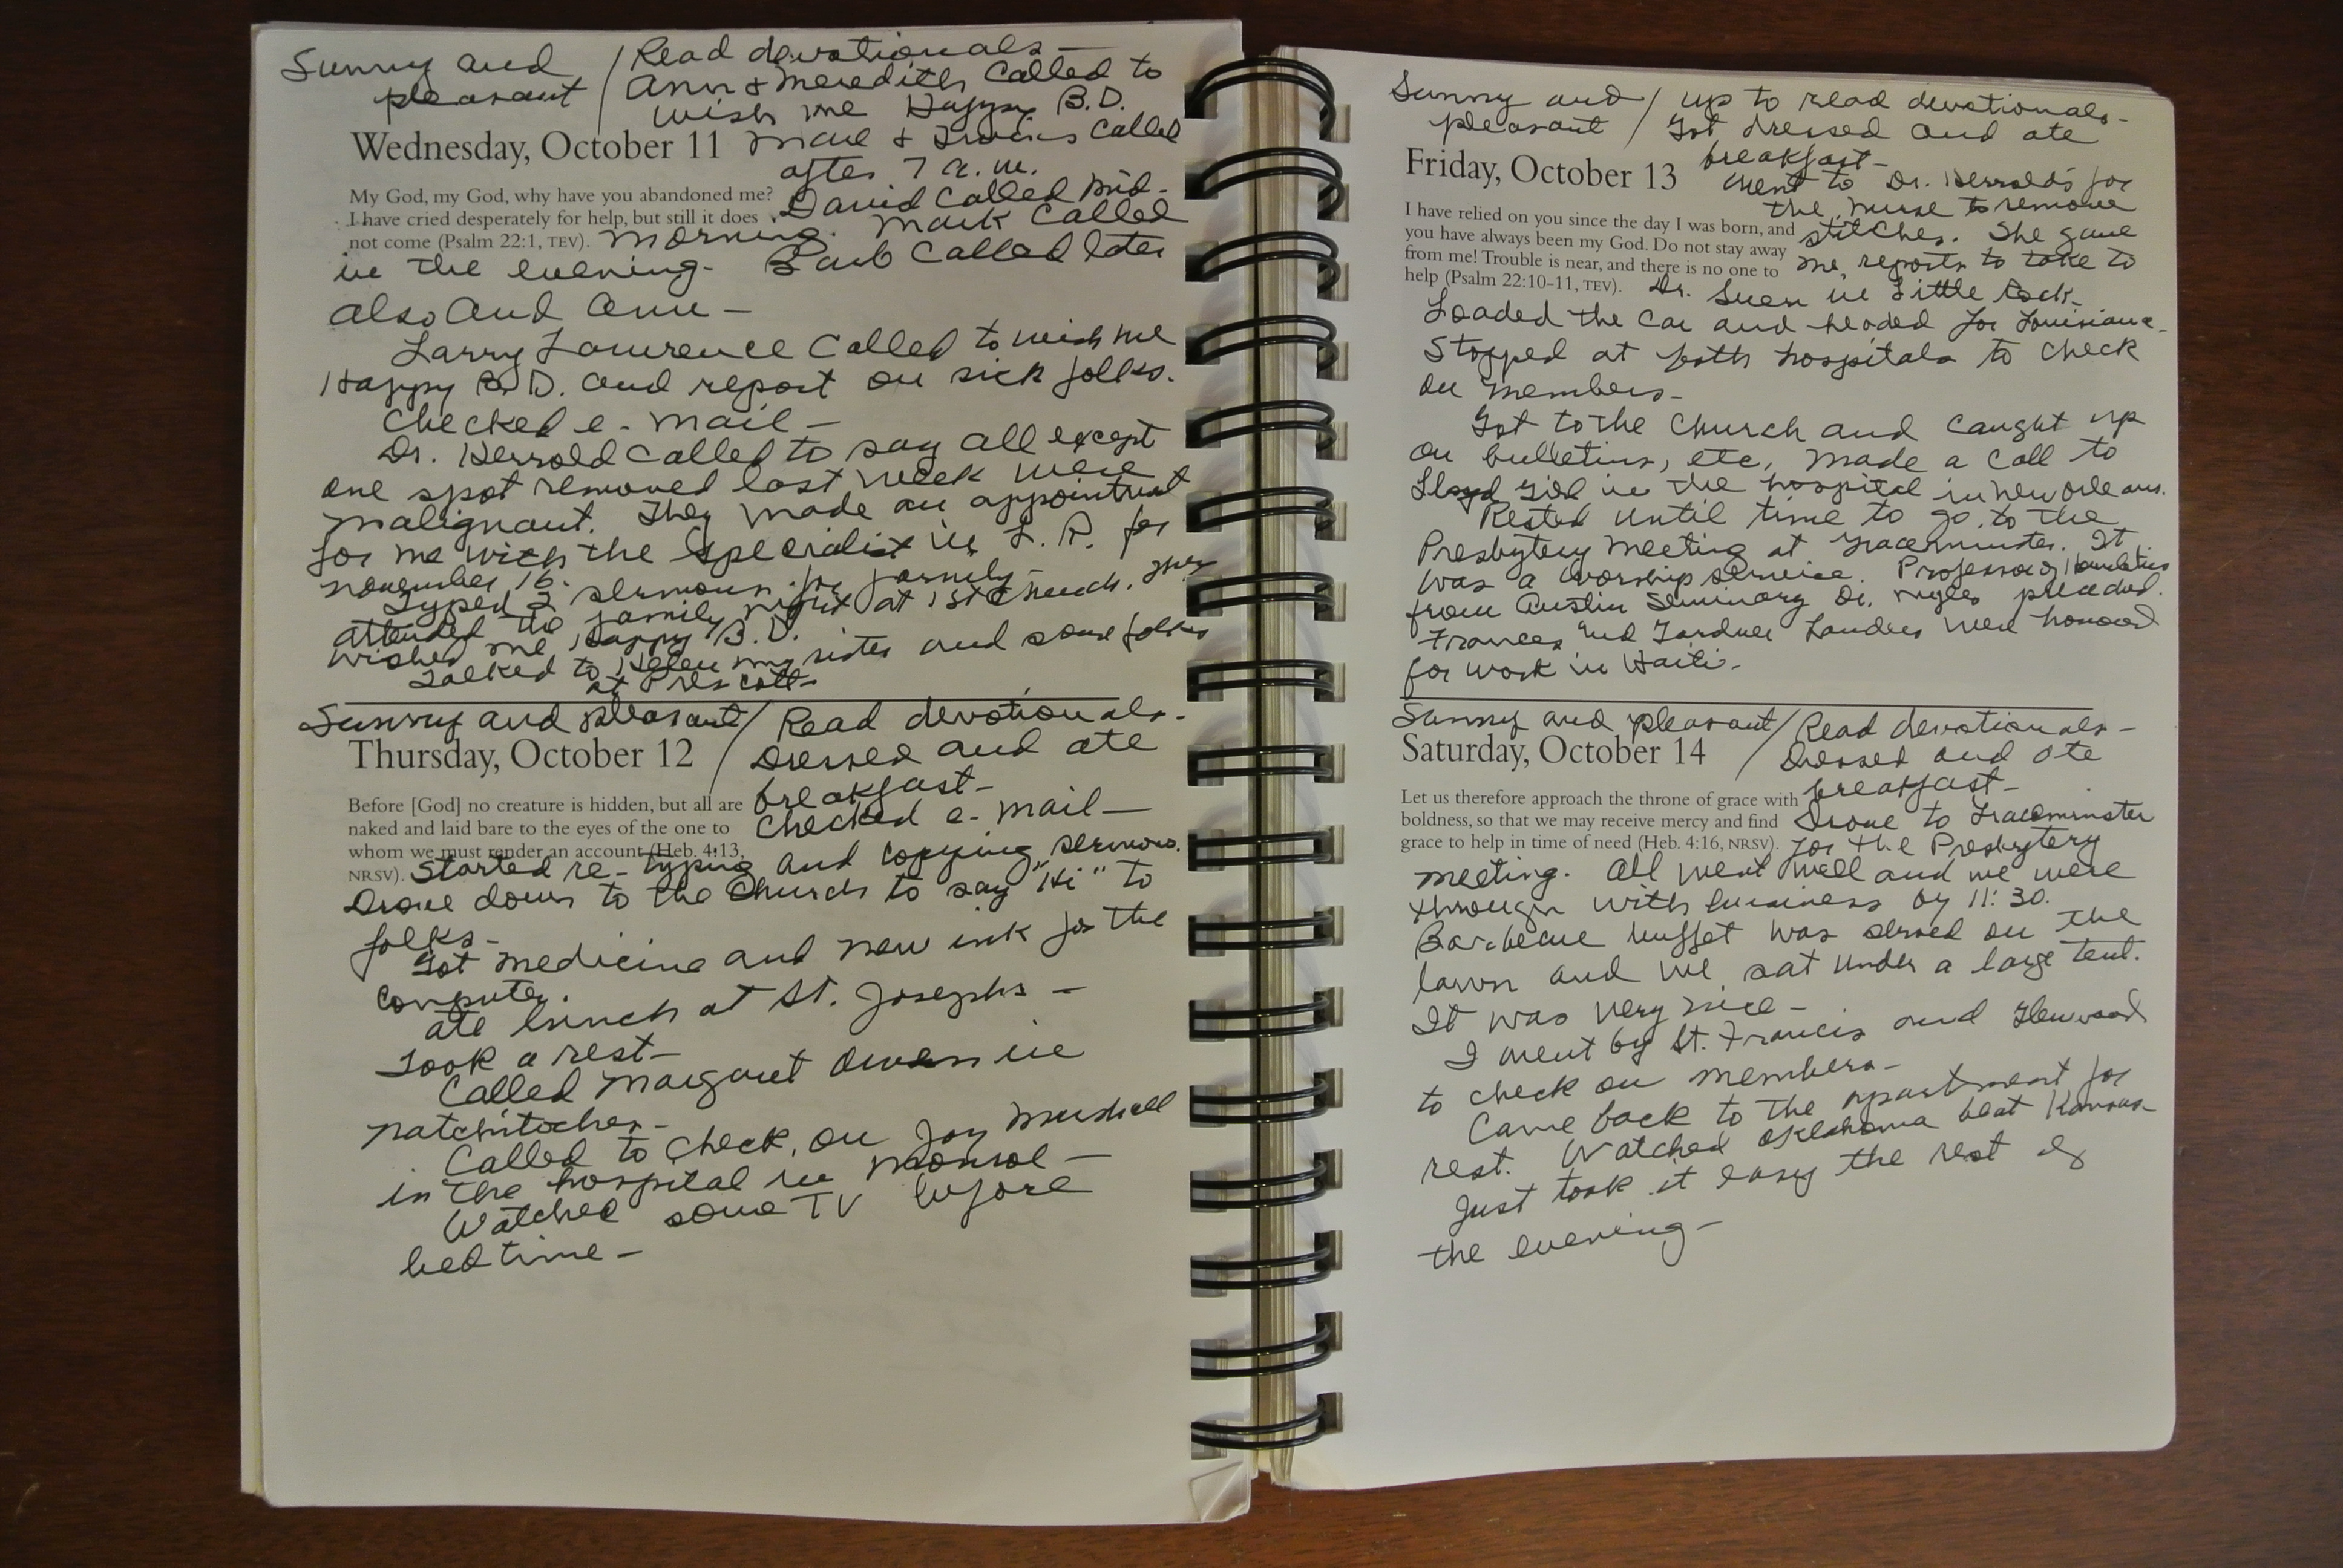 Sunny and / Read devotionals —
pleasant / Ann & Meredith called to
wish me Happy B.D.
Wednesday, October 11 & called
after 7 a.m.
My God, my God, why have you abandoned me? David called mid-
I have cried desperately for help, but still it does Mark called
not come (Psalm 22:1, TEV). morning.
in the evening - Barb called later
also and Ann —
Larry Lawrence called to wish me
Happy B.D. and report on sick folks.
Checked e-mail —
Dr. Herrold called to say all except
one spot removed last week were
malignant. They made an appointment
for me with the specialist in L.R. for
November 16.
Typed 2 sermons for family -
attended the family night at 1st Church. They
wished me Happy B.D.
Talked to Helen my sister and some folks
at Prescott -
Sunny and pleasant / Read devotionals -
Thursday, October 12 / Dressed and ate
Before [God] no creature is hidden, but all are breakfast -
naked and laid bare to the eyes of the one to Checked e-mail —
whom we must render an account (Heb. 4:13,
NRSV). Started re-typing and copying sermons.
Drove down to the Church to say "Hi" to
folks -
Got medicine and new ink for the
computer.
Ate lunch at St. Josephs —
Took a rest —
Called Margaret Owens in
Natchitoches -
Called to check on Joy Marshall
in the hospital in Monroe —
Watched some TV before
bedtime —
Sunny and / up to read devotionals -
pleasant / Got dressed and ate
breakfast -
Friday, October 13 Went to Dr. Herrolds for
the nurse to remove
I have relied on you since the day I was born, and stitches. She gave
you have always been my God. Do not stay away
from me! Trouble is near, and there is no one to me reports to take to
help (Psalm 22:10–11, TEV). Dr. Suen in Little Rock -
Loaded the car and headed for Louisiana -
Stopped at both hospitals to check
on members -
Got to the Church and caught up
on bulletins, etc, Made a call to
Lloyd in the hospital in New Orleans.
Rested until time to go to the
Presbytery meeting at Graceminster. It
was a worship service. Professor of Homiletics
from Austin Seminary Dr. preached.
Frances and Gardner Landers were honored
for work in Haiti -
Sunny and pleasant / Read devotionals -
Saturday, October 14 / Dressed and ate
breakfast -
Let us therefore approach the throne of grace with
boldness, so that we may receive mercy and find Drove to Graceminster
grace to help in time of need (Heb. 4:16, NRSV). for the Presbytery
meeting. All went well and we were
through with business by 11:30.
Barbecue buffet was served on the
lawn and we sat under a large tent.
It was very nice —
I went by St. Francis and Glenwood
to check on members -
Came back to the apartment for
rest. Watched Oklahoma beat Kansas -
Just took it easy the rest of
the evening —